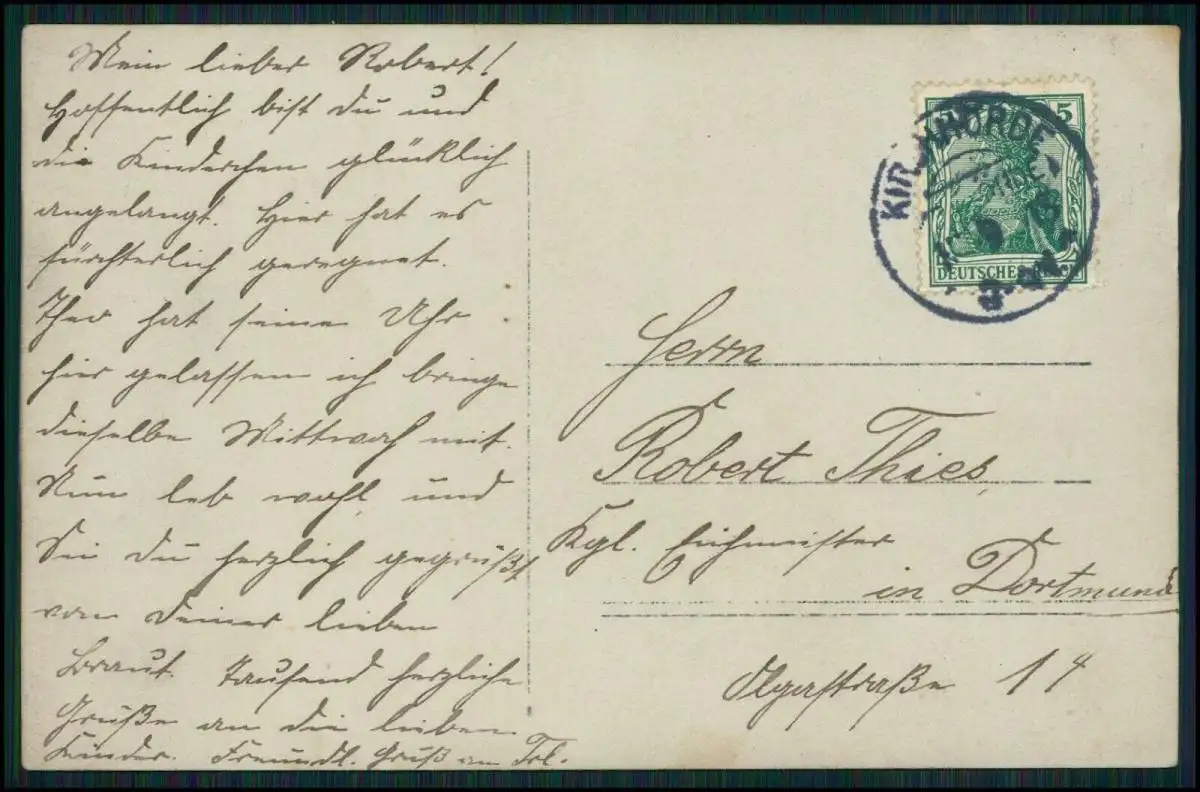 Mein lieber Robert!
Hoffentlich bist Du und
die Kinderchen glücklich
angelangt. Hier hat es
fürchterlich geregnet.
Theo hat seine Uhr
hier gelassen ich bringe
dieselbe Mittwoch mit.
Nun leb wohl, und
Sei Du herzlich gegrüßt
von Deiner lieben
Braut. Tausend herzliche
Grüße an die lieben
Kinder. Freundl. Gruß an Frl.
5
KIRCHHÖRDE
DEUTSCHES REICH
Herrn
Robert Thies,
Kgl. Eichmeister
in Dortmund
Olgastraße 14